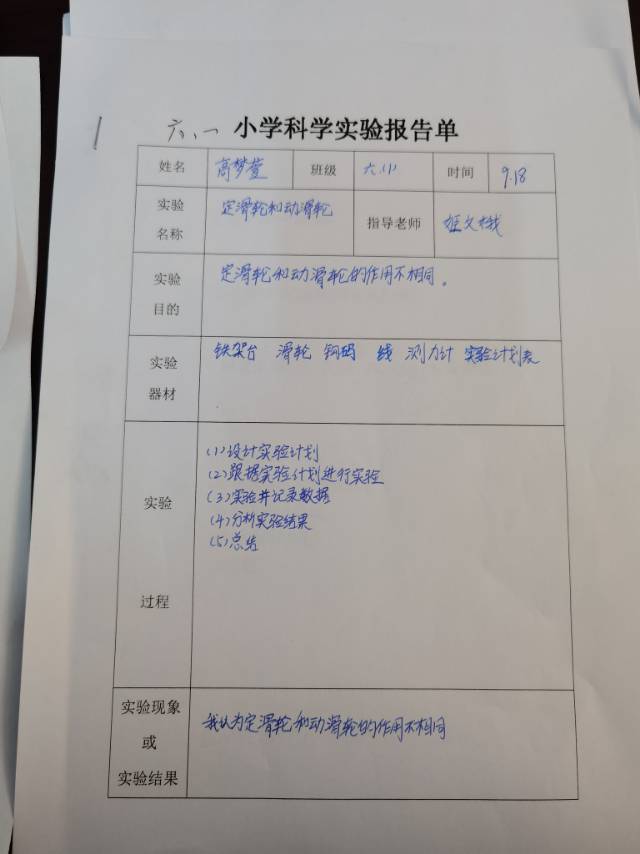 六、一 小学科学实验报告单
姓名 高梦萱 班级 六.(1) 时间 9.18
实验名称 定滑轮和动滑轮 指导老师
实验目的 定滑轮和动滑轮的作用不相同。
实验器材 铁架台 滑轮 钩码 线 测力计 实验计划表
实验过程
(1)设计实验计划
(2)跟据实验计划进行实验
(3)实验并记录数据
(4)分析实验结果
(5)总结
实验现象或实验结果 我认为定滑轮和动滑轮的作用不相同